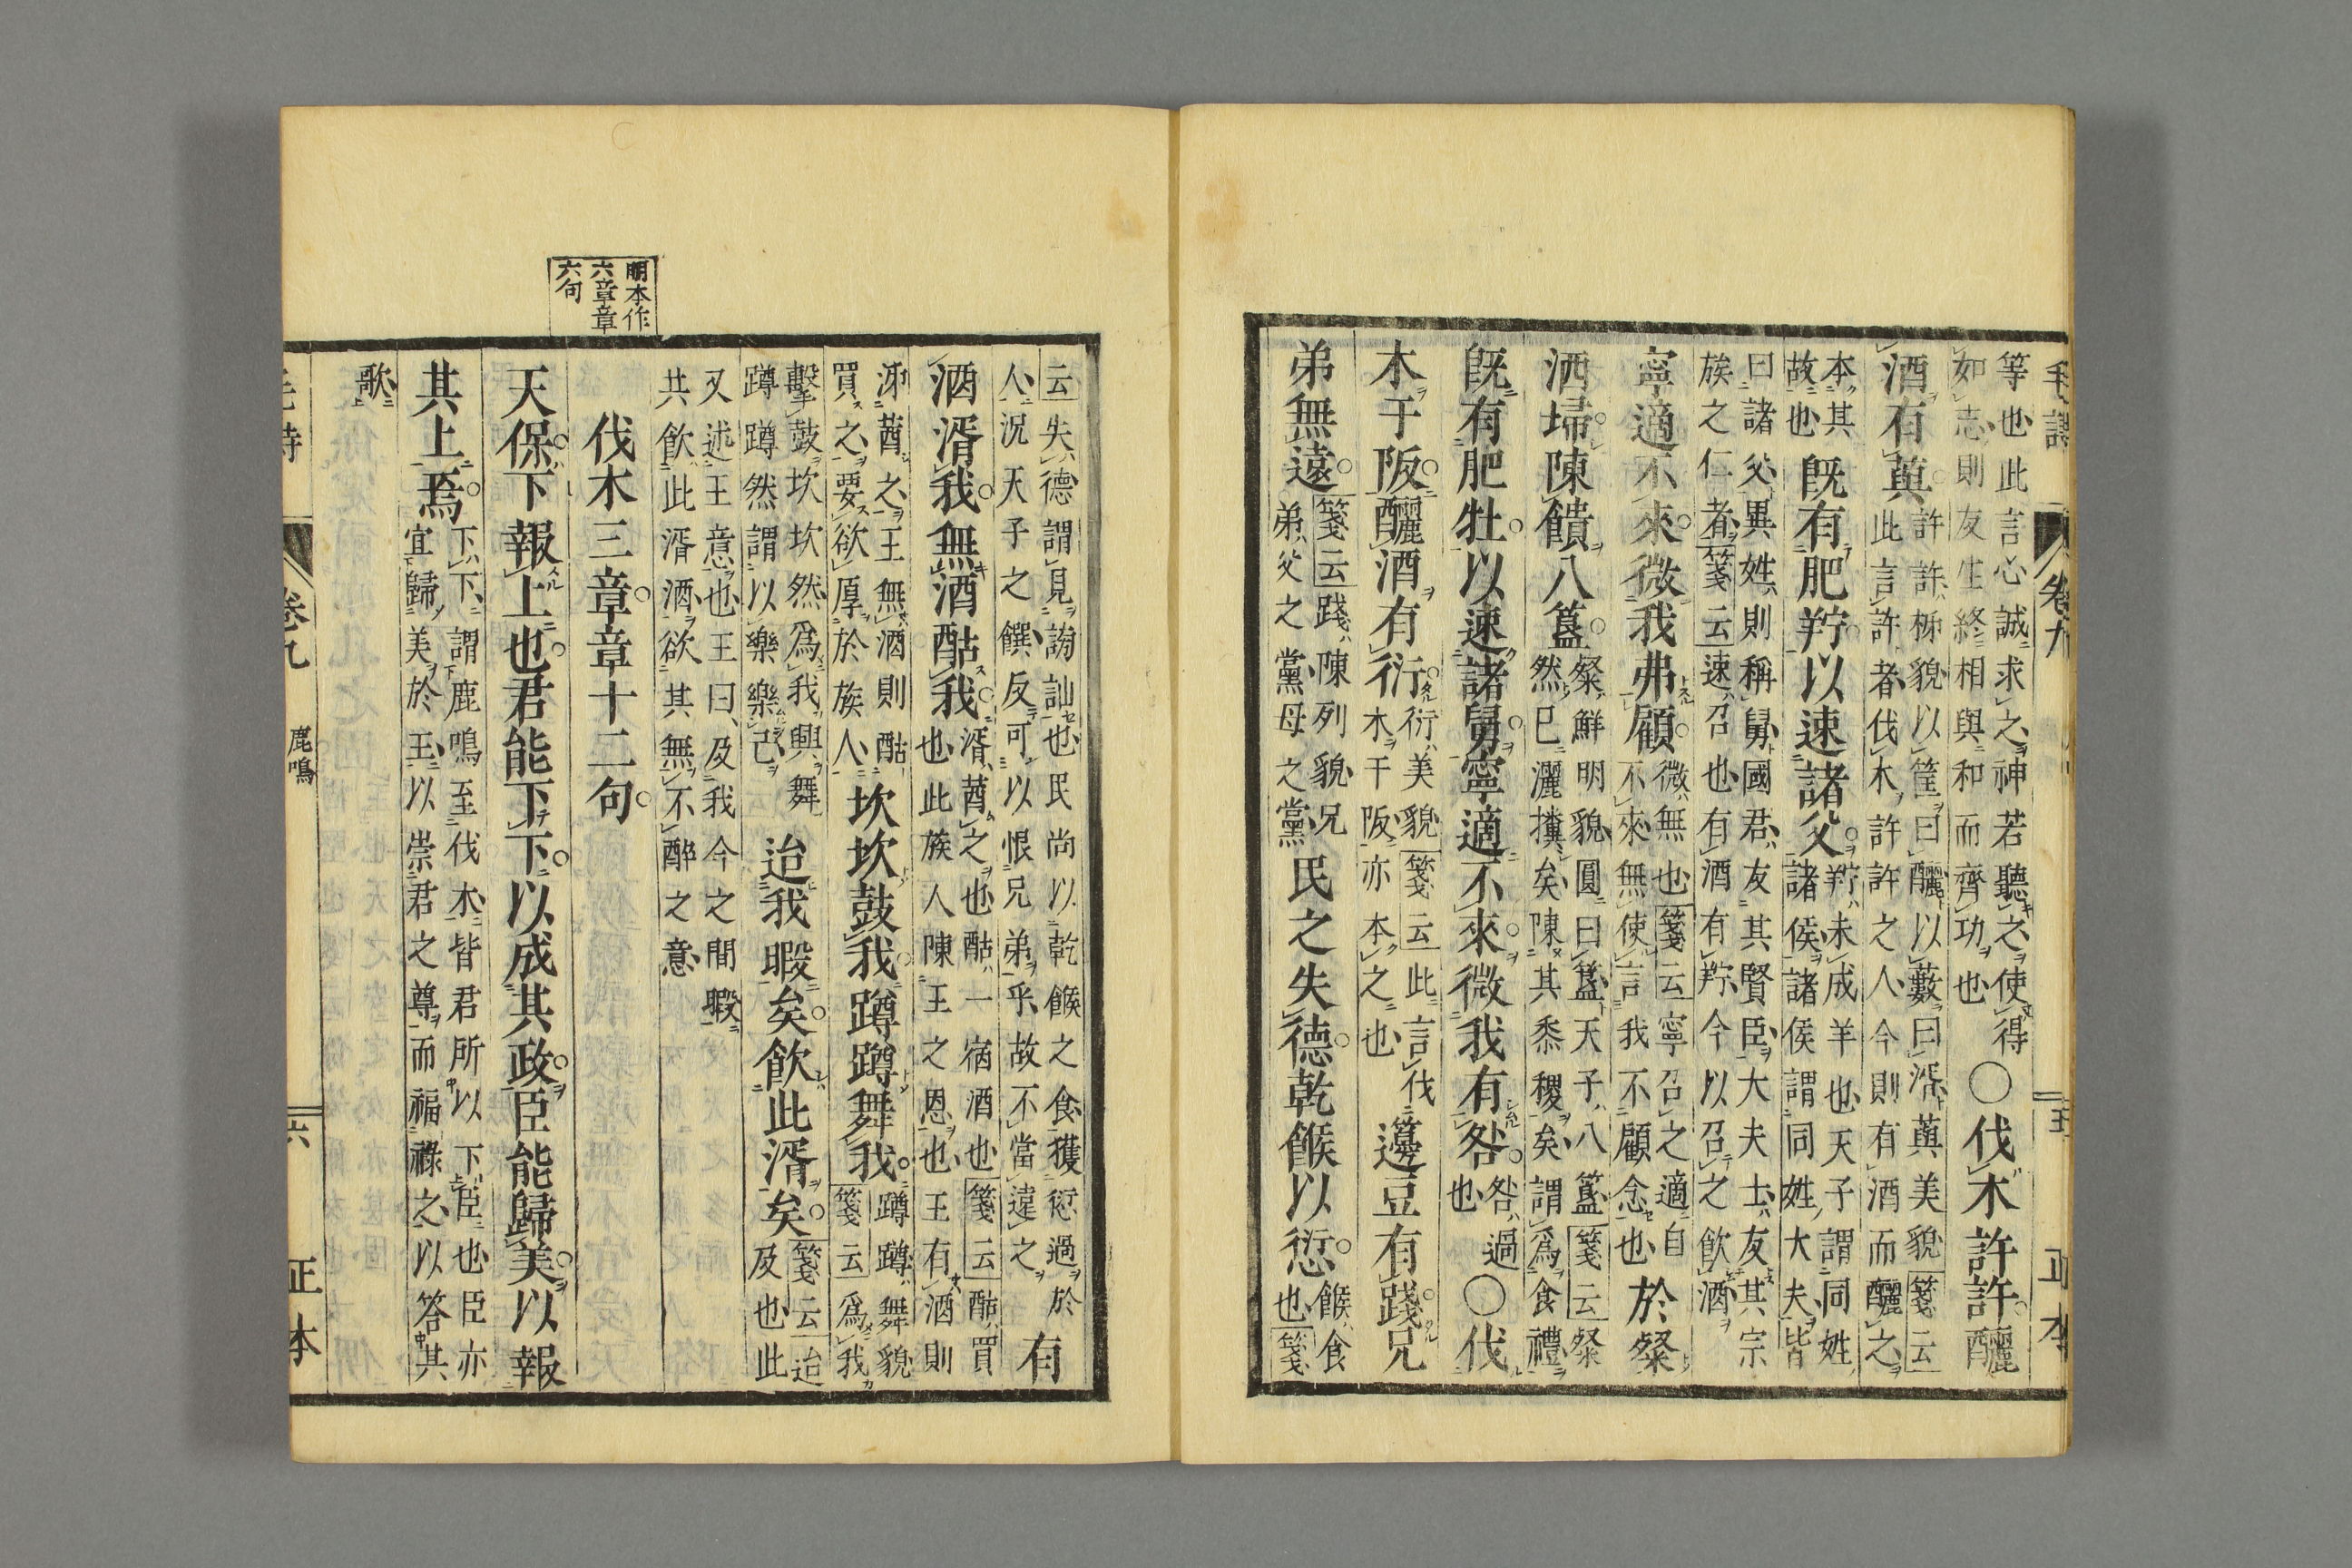 毛詩 卷九 五 正本
等也此言心誠求之神若聽之使得
如志則友生終相與和而齊功也
○伐木許許釃
酒有藇
許許柹貌以筐曰釃以藪曰湑藇美貌箋云
此言許者伐木許許之人今則有酒而釃之
本其
故也
既有肥羜以速諸父
羜未成羊也天子謂同姓
諸侯諸侯謂同姓大夫皆
曰諸父異姓則稱舅國君友其賢臣大夫士友其宗
族之仁者箋云速召也有酒有羜今以召之飲酒
寧適不來微我弗顧
微無也箋云寧召之適自
不來無使言我不顧念也
於粲
洒埽陳饋八簋
粲鮮明貌圓曰簋天子八簋箋云粲
然已灑㩲矣陳其黍稷矣謂爲食禮
既有肥牡以速諸舅寧適不來微我有咎
咎過
也
○伐
木于阪釃酒有衍
衍美貌箋云此言伐
木于阪亦本之也
籩豆有踐兄
弟無遠
箋云踐陳列貌兄
弟父之黨母之黨
民之失德乾餱以愆
餱食
也箋
云失德謂見謗訕也民尚以乾餱之食獲愆過於
人況天子之饌反可以恨兄弟乎故不當違之
有
酒湑我無酒酤我
湑莤之也酤一宿酒也箋云酤買
也此族人陳王之恩也王有酒則
泲莤之王無酒則酤
買之要欲厚於族人
坎坎鼓我蹲蹲舞我
蹲蹲舞貌
箋云爲我
擊鼓坎坎然爲我興舞
蹲蹲然謂以樂樂己
迨我暇矣飲此湑矣
箋云迨
及也此
又述王意也王曰及我今之間暇
共飲此湑酒欲其無不醉之意
明本作
六章章
六句
伐木三章章十二句
天保下報上也君能下下以成其政臣能歸美以報
其上焉
下下謂鹿鳴至伐木皆君所以下臣也臣亦
宜歸美於王以崇君之尊而福祿之以答其
歌
毛詩 卷九 鹿鳴 六 正本